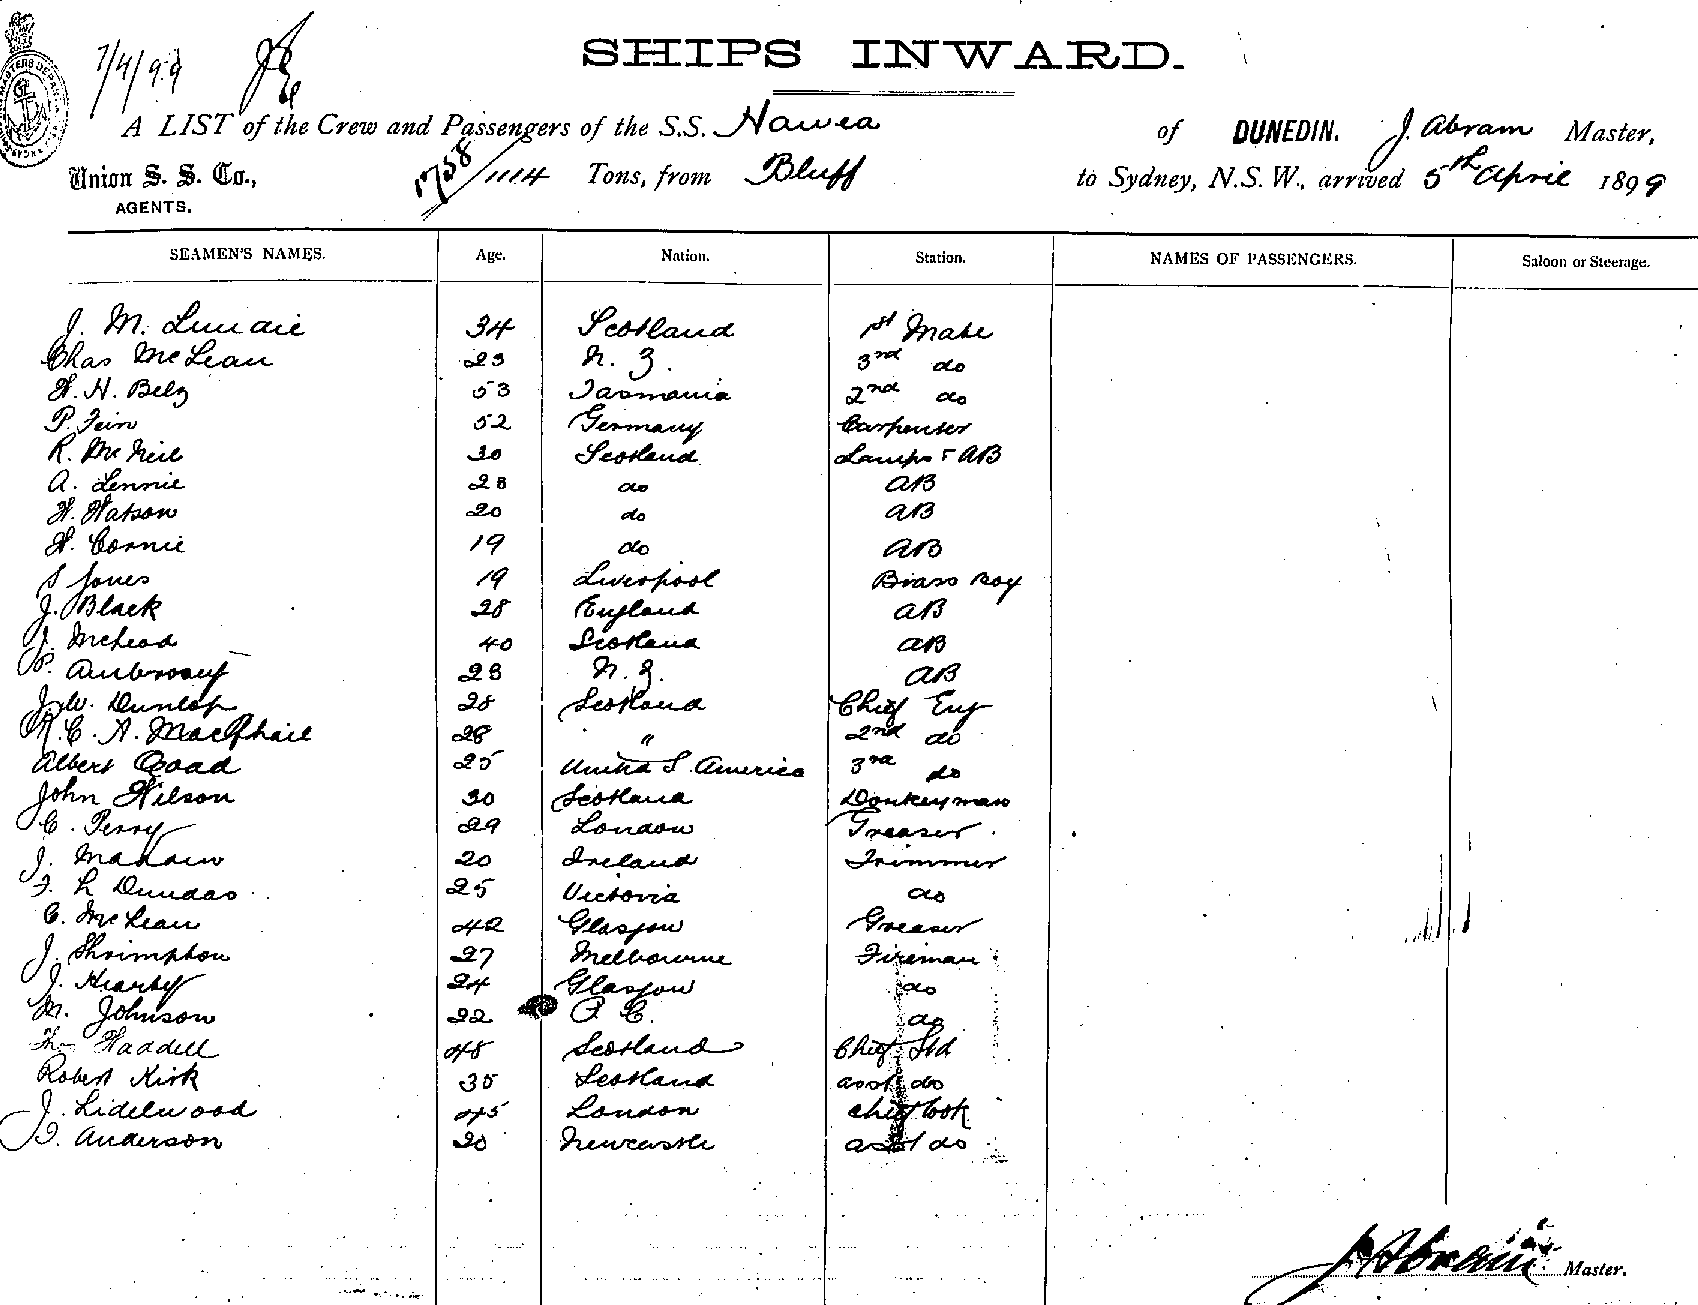 7/4/99
SHIPS INWARD.
A LIST of the Crew and Passengers of the S.S. Hawea of DUNEDIN. J. Abram Master,
Union S. S. Co., AGENTS. 1758/1114 Tons, from Bluff to Sydney, N.S.W., arrived 5th April 1899
SEAMEN'S NAMES. Age. Nation. Station. NAMES OF PASSENGERS. Saloon or Steerage.
J. M. 34 Scotland 1st Mate
Chas McLean 23 N. Z. 3rd do
W. H. Belz 53 Tasmania 2nd do
P. Fein 52 Germany Carpenter
R. McNeil 30 Scotland Lamps & AB
A. Lennie 28 do AB
W. Watson 20 do AB
W. Cornie 19 do AB
S Jones 19 Liverpool Brass Boy
J. Black 28 England AB
J. McLeod 40 Scotland AB
P. 28 N. Z. AB
J. W. Dunlop 28 Scotland Chief Eng
R. C. A. MacPhail 28 " 2nd do
Albert Coad 25 United S. America 3rd do
John Wilson 30 Scotland Donkeyman
C. Perry 29 London Greaser
J. 20 Ireland Trimmer
F. L Dundas 25 Victoria do
C. McLean 42 Glasgow Greaser
J. Shrimpton 27 Melbourne Fireman
J. Kearby 24 Glasgow do
M. Johnson 22 P. C. do
Thos Waddell 48 Scotland Chief Std
Robert Kirk 35 Scotland asst do
J. Lidelwood 45 London chief Cook
J. Anderson 20 Newcastle asst do
J Abram Master.